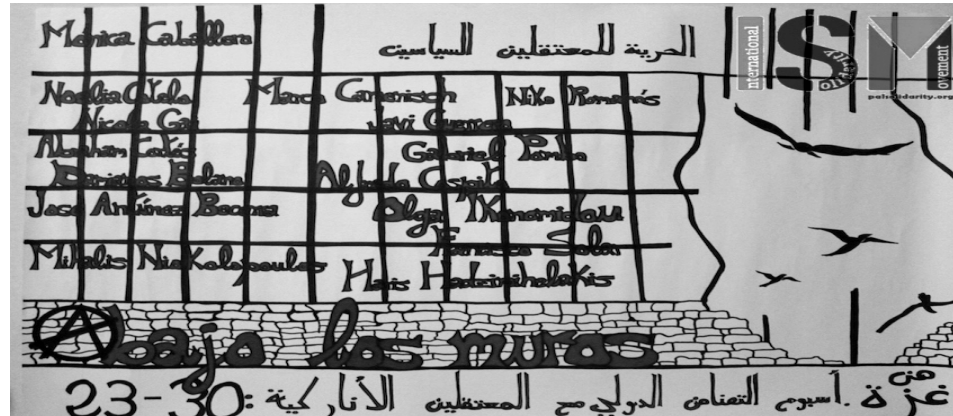 Mónica Caballero
الحرية للمعتقلين السياسين
International
Solidarity
Movement
palsolidarity.org
Noelia Cotelo Marco Camenisch Niko Romanós
Nicola Gai Javi Guerrero
Gabriel Pombo
Alfredo Cospito
José Antúnez Becerra Olga IKonomidou
Francisco Solar
Mihalis NiKolopoulos
Haris Hadzimihelakis
Abajo los muros
من غزة . أسبوع التضامن الدولي مع المعتقلين الأناركية : 23-30